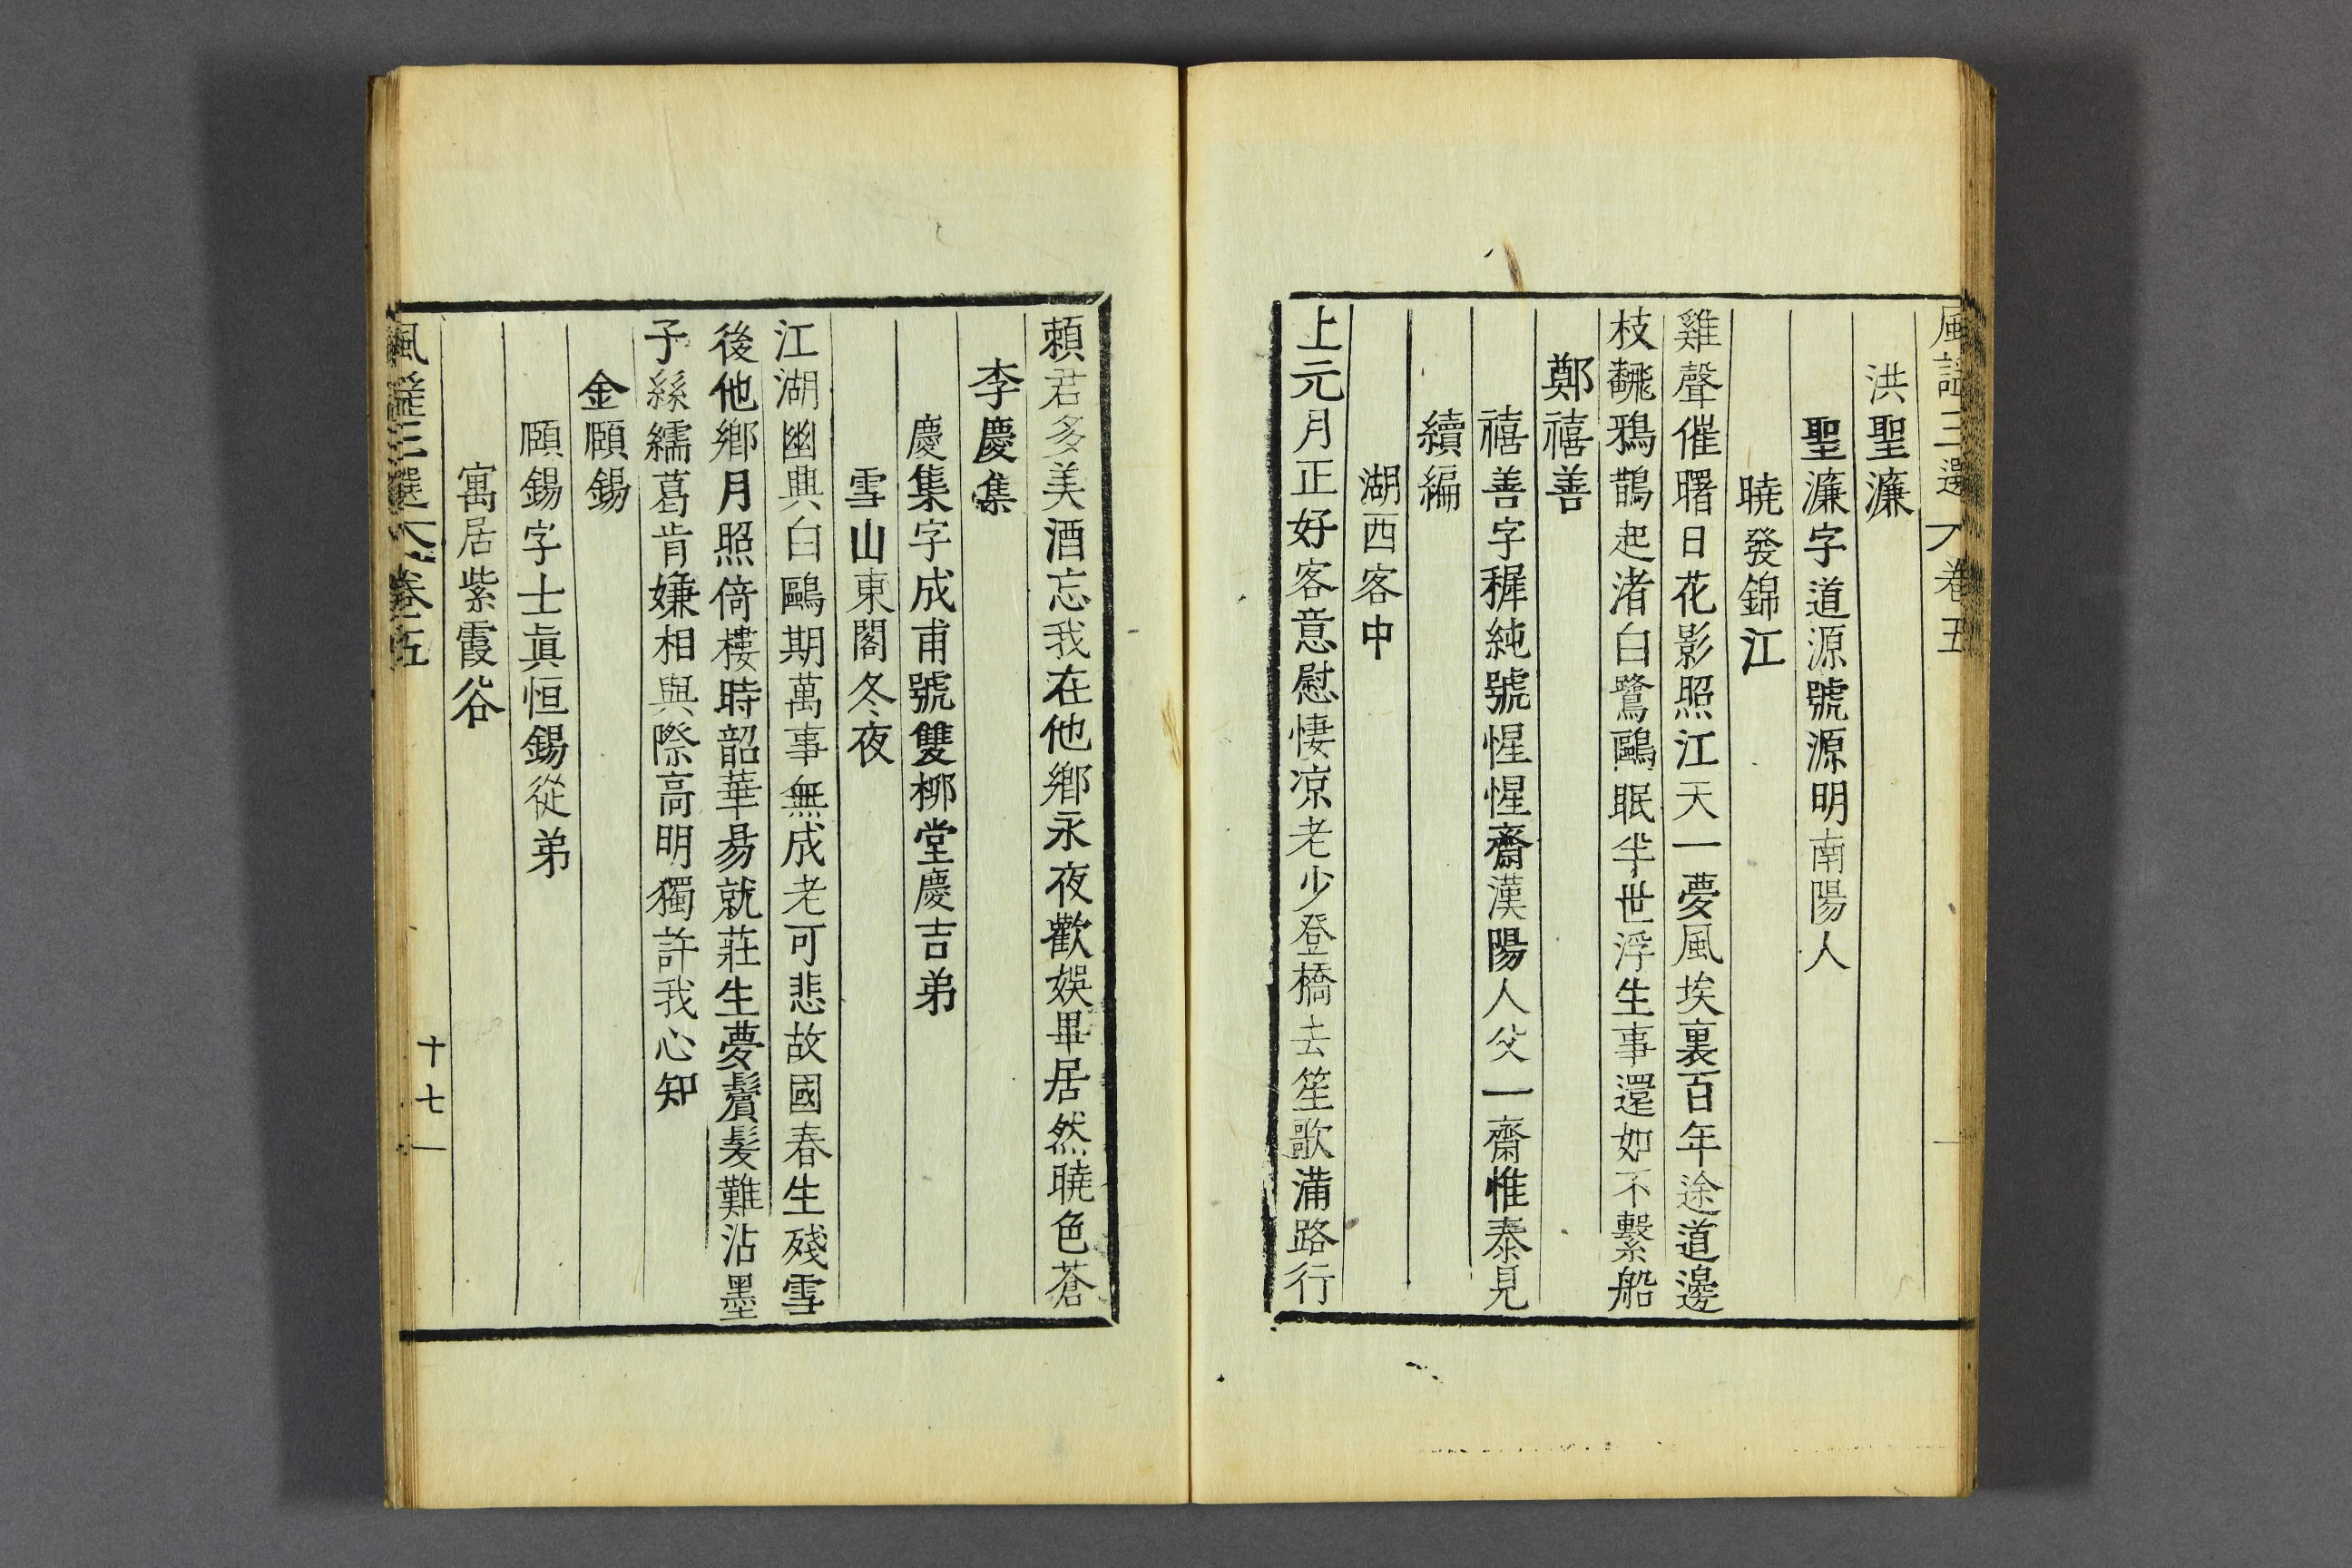 風謠三選 卷五
洪聖濂
聖濂字道源號源明南陽人
曉發錦江
雞聲催曙日花影照江天一夢風埃裏百年途道邊
枝飜鴉鵲起渚白鷺鷗眠半世浮生事還如不繫船
鄭禧善
禧善字穉純號惺惺齋漢陽人父一齋惟泰見
續編
湖西客中
上元月正好客意慰悽凉老少登橋去笙歌滿路行
頼君多美酒忘我在他鄉永夜歡娛畢居然曉色蒼
李慶集
慶集字成甫號雙栁堂慶吉弟
雪山東閣冬夜
江湖幽興白鷗期萬事無成老可悲故國春生殘雪
後他鄉月照倚樓時韶華易就莊生夢鬢髮難沾墨
子絲繻葛肯嫌相與際高明獨許我心知
金頤錫
頤錫字士眞恒錫從弟
寓居紫霞谷
風謠三選 卷五 十七